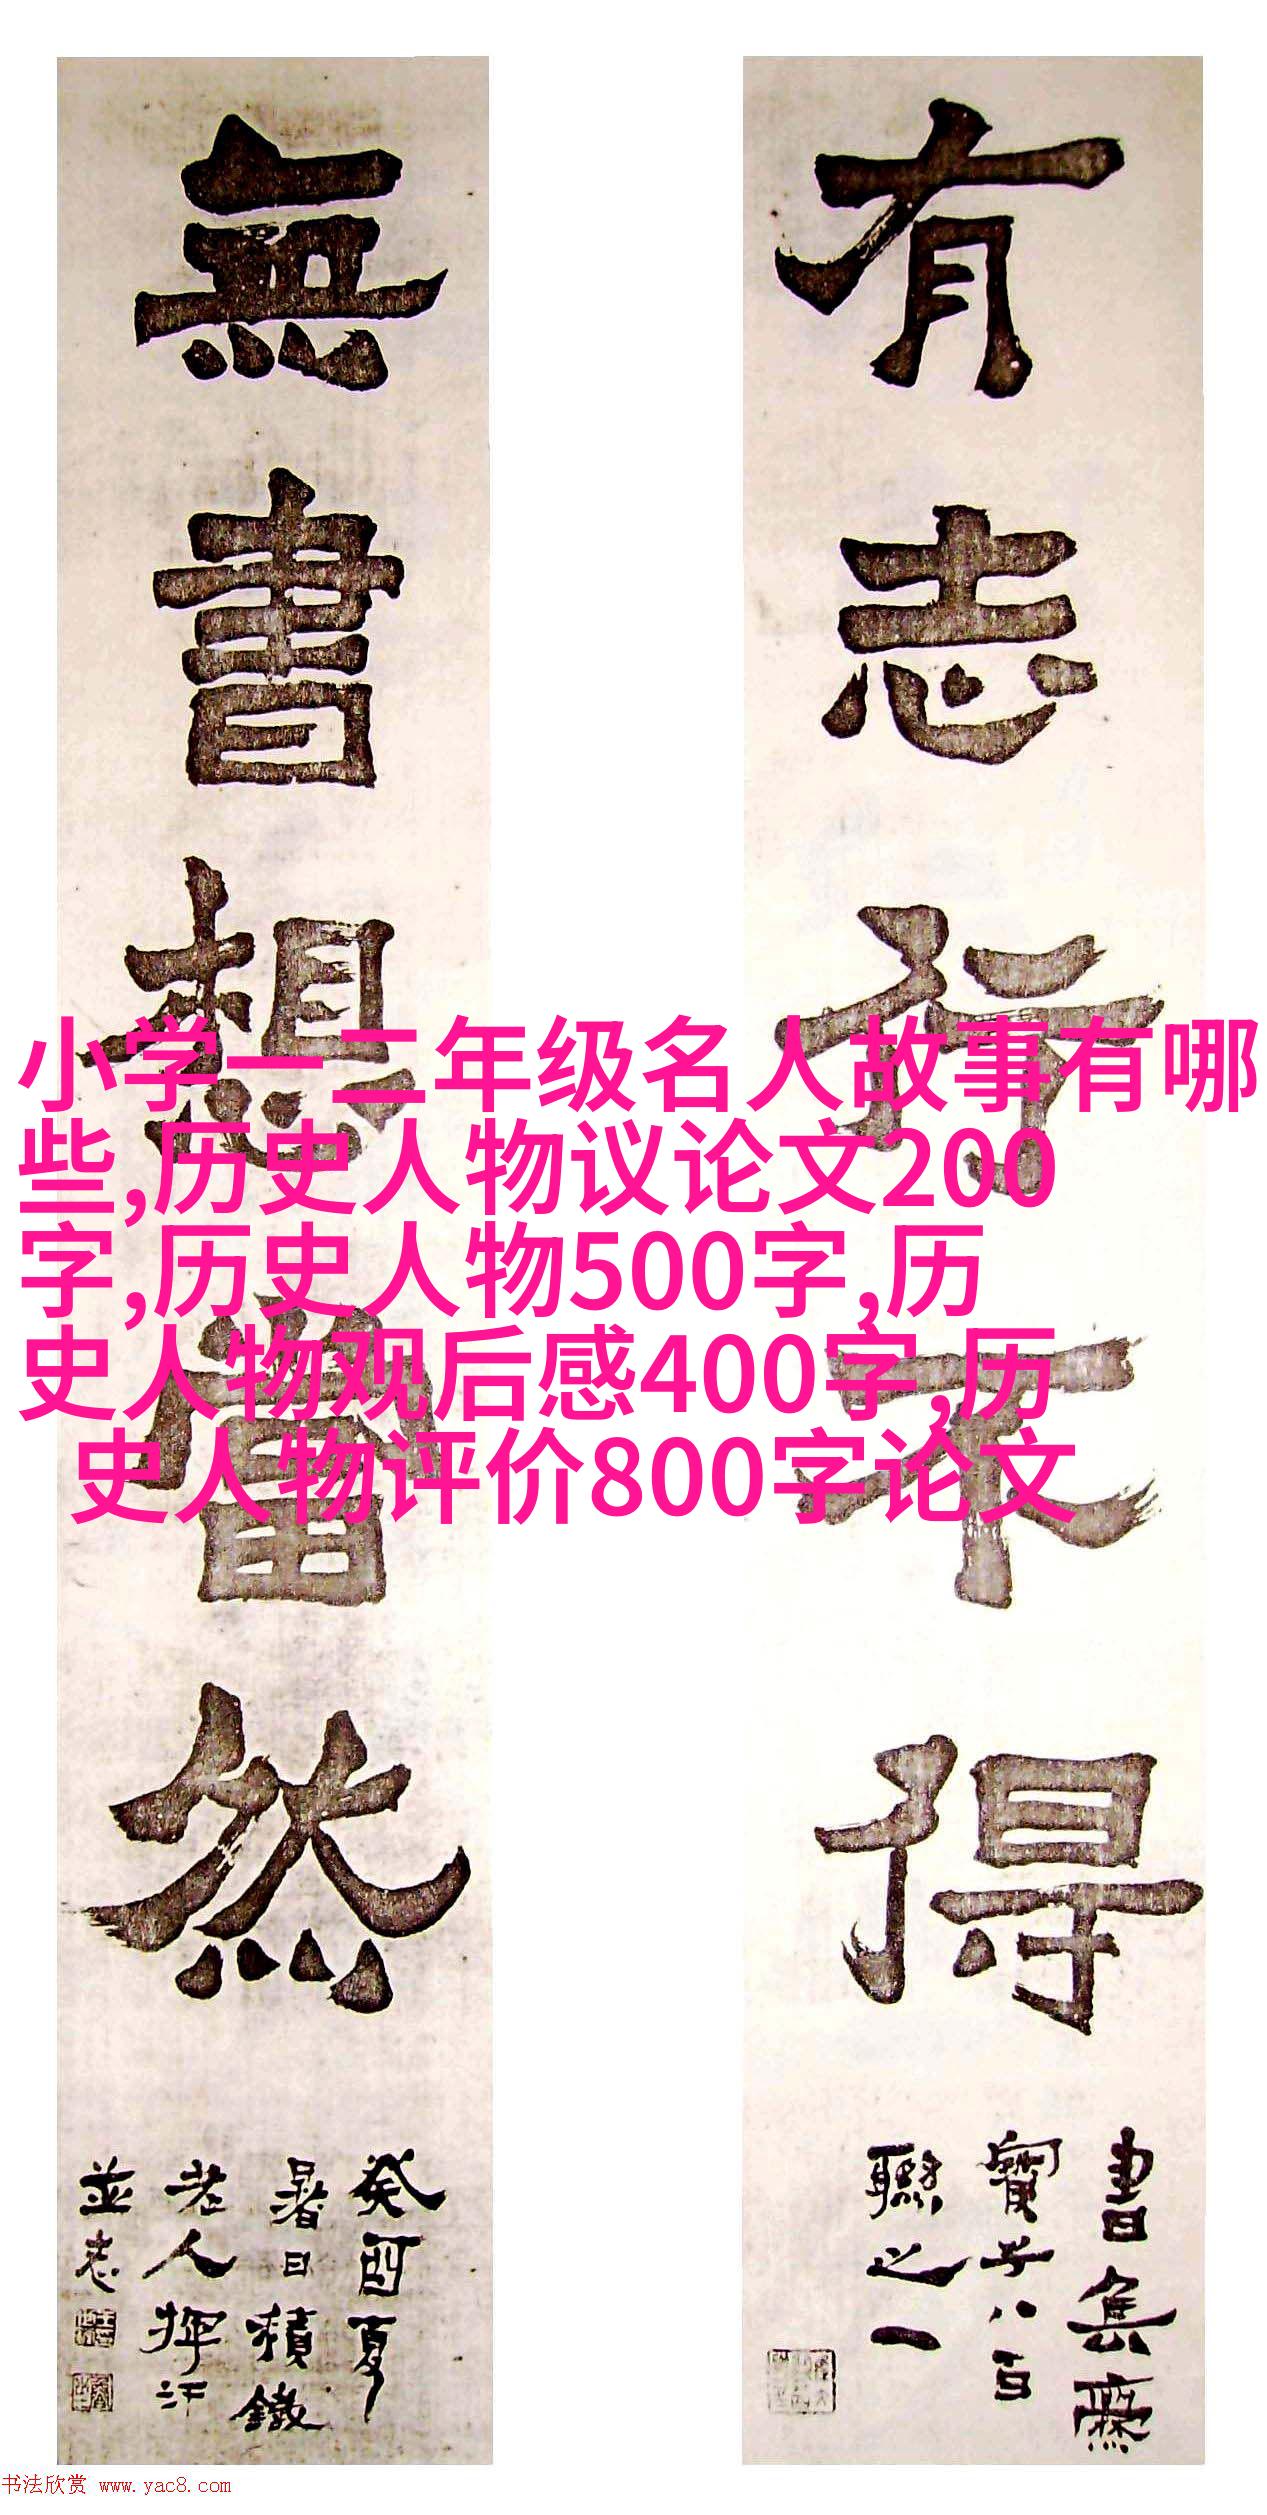 有志行不得
書集齋
寶子八百
聯之一
無書想當然
癸酉夏
暑日積鐵
老人揮汗
並志
小学一二年级名人故事有哪
些,历史人物议论文200
字,历史人物500字,历
史人物观后感400字,历
史人物评价800字论文
书法欣赏 www.yac8.com